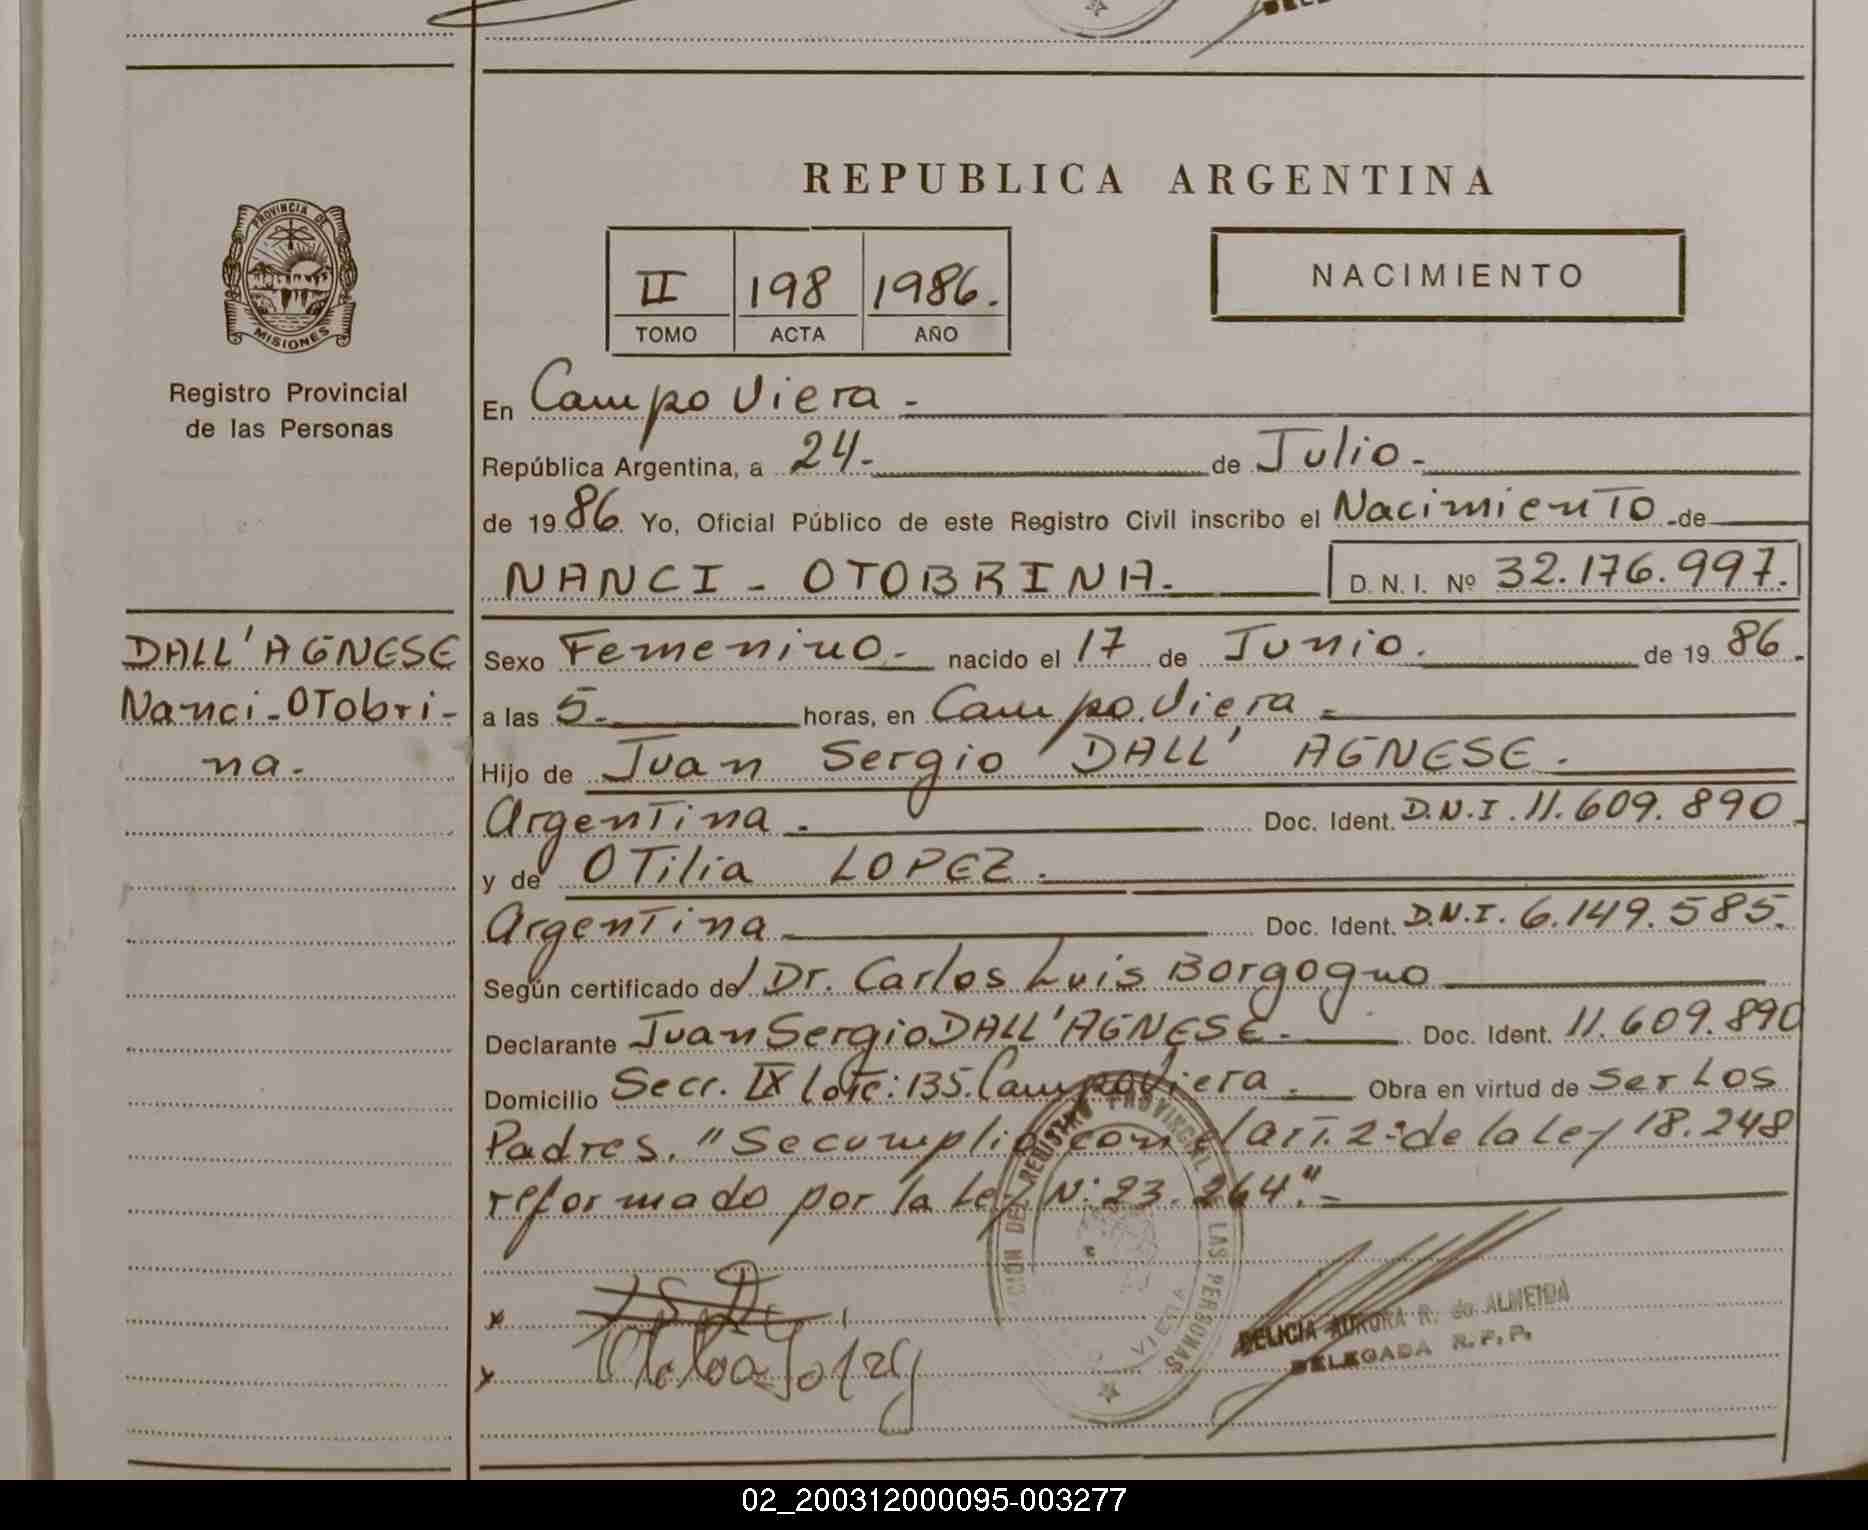 PROVINCIA DE
MISIONES
Registro Provincial
de las Personas
DALL'AGNESE
Nanci-OTobri-
na.
REPUBLICA ARGENTINA
II 198 1986.
TOMO ACTA AÑO
NACIMIENTO
En Campo Viera.-
República Argentina, a 24.- de Julio.-
de 1986. Yo, Oficial Público de este Registro Civil inscribo el NacimienTo de
NANCI - OTOBRINA.- D.N.I. Nº 32.176.997.
Sexo Femenino.- nacido el 17 de Junio. de 19 86.
a las 5.- horas, en Campo Viera.-
Hijo de Juan Sergio DALL' AGNESE.
ArgenTina.- Doc. Ident. D.N.I. 11.609.890
y de OTilia LOPEZ.
ArgenTina Doc. Ident. D.N.I. 6.149.585.
Según certificado del Dr. Carlos Luis Borgogno
Declarante Juan Sergio DALL'AGNESE.- Doc. Ident. 11.609.890
Domicilio Secc. IX loTe: 135. Campo Viera. Obra en virtud de ser Los
Padres. "Se cumplió con el arT. 2º de la Ley 18.248
reformado por la Ley Nº 23.264".-
REGISTRO PROVINCIAL DE LAS PERSONAS
VIERA
x
x
DELICIA AURORA R. de ALMEIDA
DELEGADA R.P.P.
02_200312000095-003277